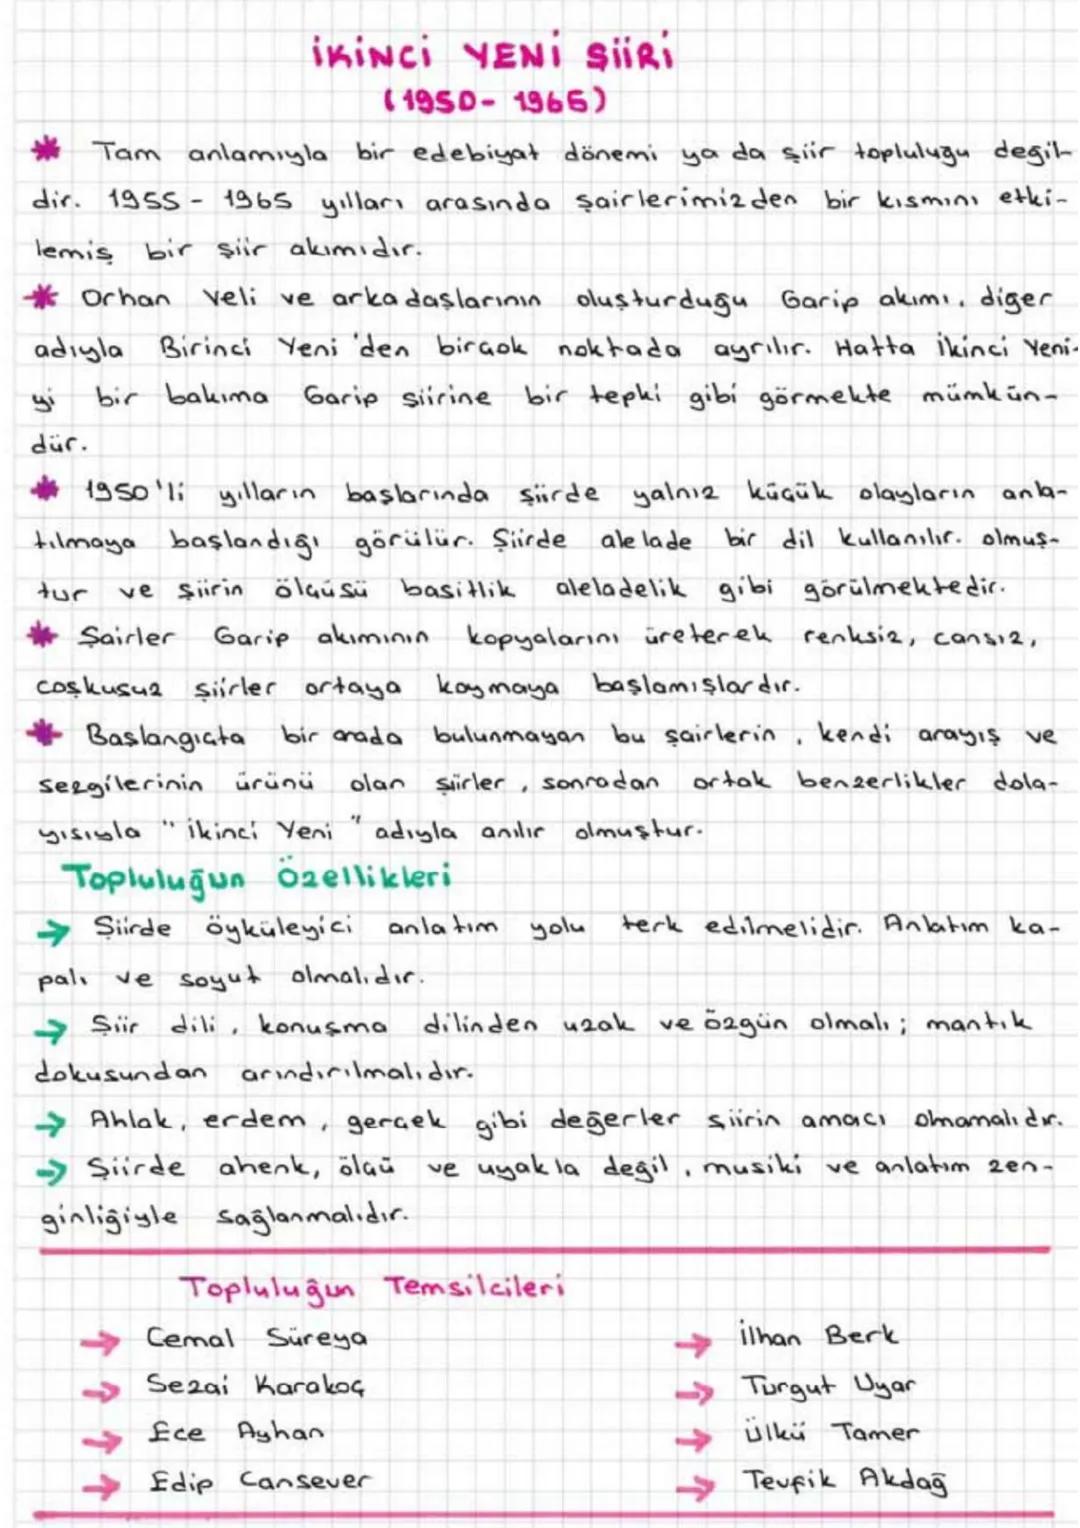 İKİNCİ YENİ ŞİİRİ
(1950- 1965)
* Tam anlamıyla bir edebiyat dönemi ya da şiir topluluğu değil-
dir. 1955 - 1965 yılları arasında şairlerimizden bir kısmını etki-
lemiş bir şiir akımıdır.
* Orhan Veli ve arkadaşlarının oluşturduğu Garip akımı, diğer
adıyla Birinci Yeni'den birçok noktada ayrılır. Hatta İkinci Yeni-
yi bir bakıma Garip şiirine bir tepki gibi görmekte mümkün-
dür.
* 1950'li yılların başlarında şiirde yalnız küçük olayların anla-
tılmaya başlandığı görülür. Şiirde alelade bir dil kullanılır. olmuş-
tur ve şiirin ölçüsü basitlik aleladelik gibi görülmektedir.
* Şairler Garip akımının kopyalarını üreterek renksiz, cansız,
coşkusuz şiirler ortaya koymaya başlamışlardır.
* Başlangıçta bir arada bulunmayan bu şairlerin, kendi arayış ve
sezgilerinin ürünü olan şiirler, sonradan ortak benzerlikler dola-
yısıyla "İkinci Yeni" adıyla anılır olmuştur.
Topluluğun Özellikleri
→ Şiirde öyküleyici anlatım yolu terk edilmelidir. Anlatım ka-
palı ve soyut olmalıdır.
→ Şiir dili, konuşma dilinden uzak ve özgün olmalı; mantık
dokusundan arındırılmalıdır.
→ Ahlak, erdem, gerçek gibi değerler şiirin amacı olmamalıdır.
→ Şiirde ahenk, ölçü ve uyakla değil, musiki ve anlatım zen-
ginliğiyle sağlanmalıdır.
Topluluğun Temsilcileri
→ Cemal Süreya
→ Sezai Karakoç
→ Ece Ayhan
→ Edip Cansever
→ İlhan Berk
→ Turgut Uyar
→ Ülkü Tamer
→ Tevfik Akdağ